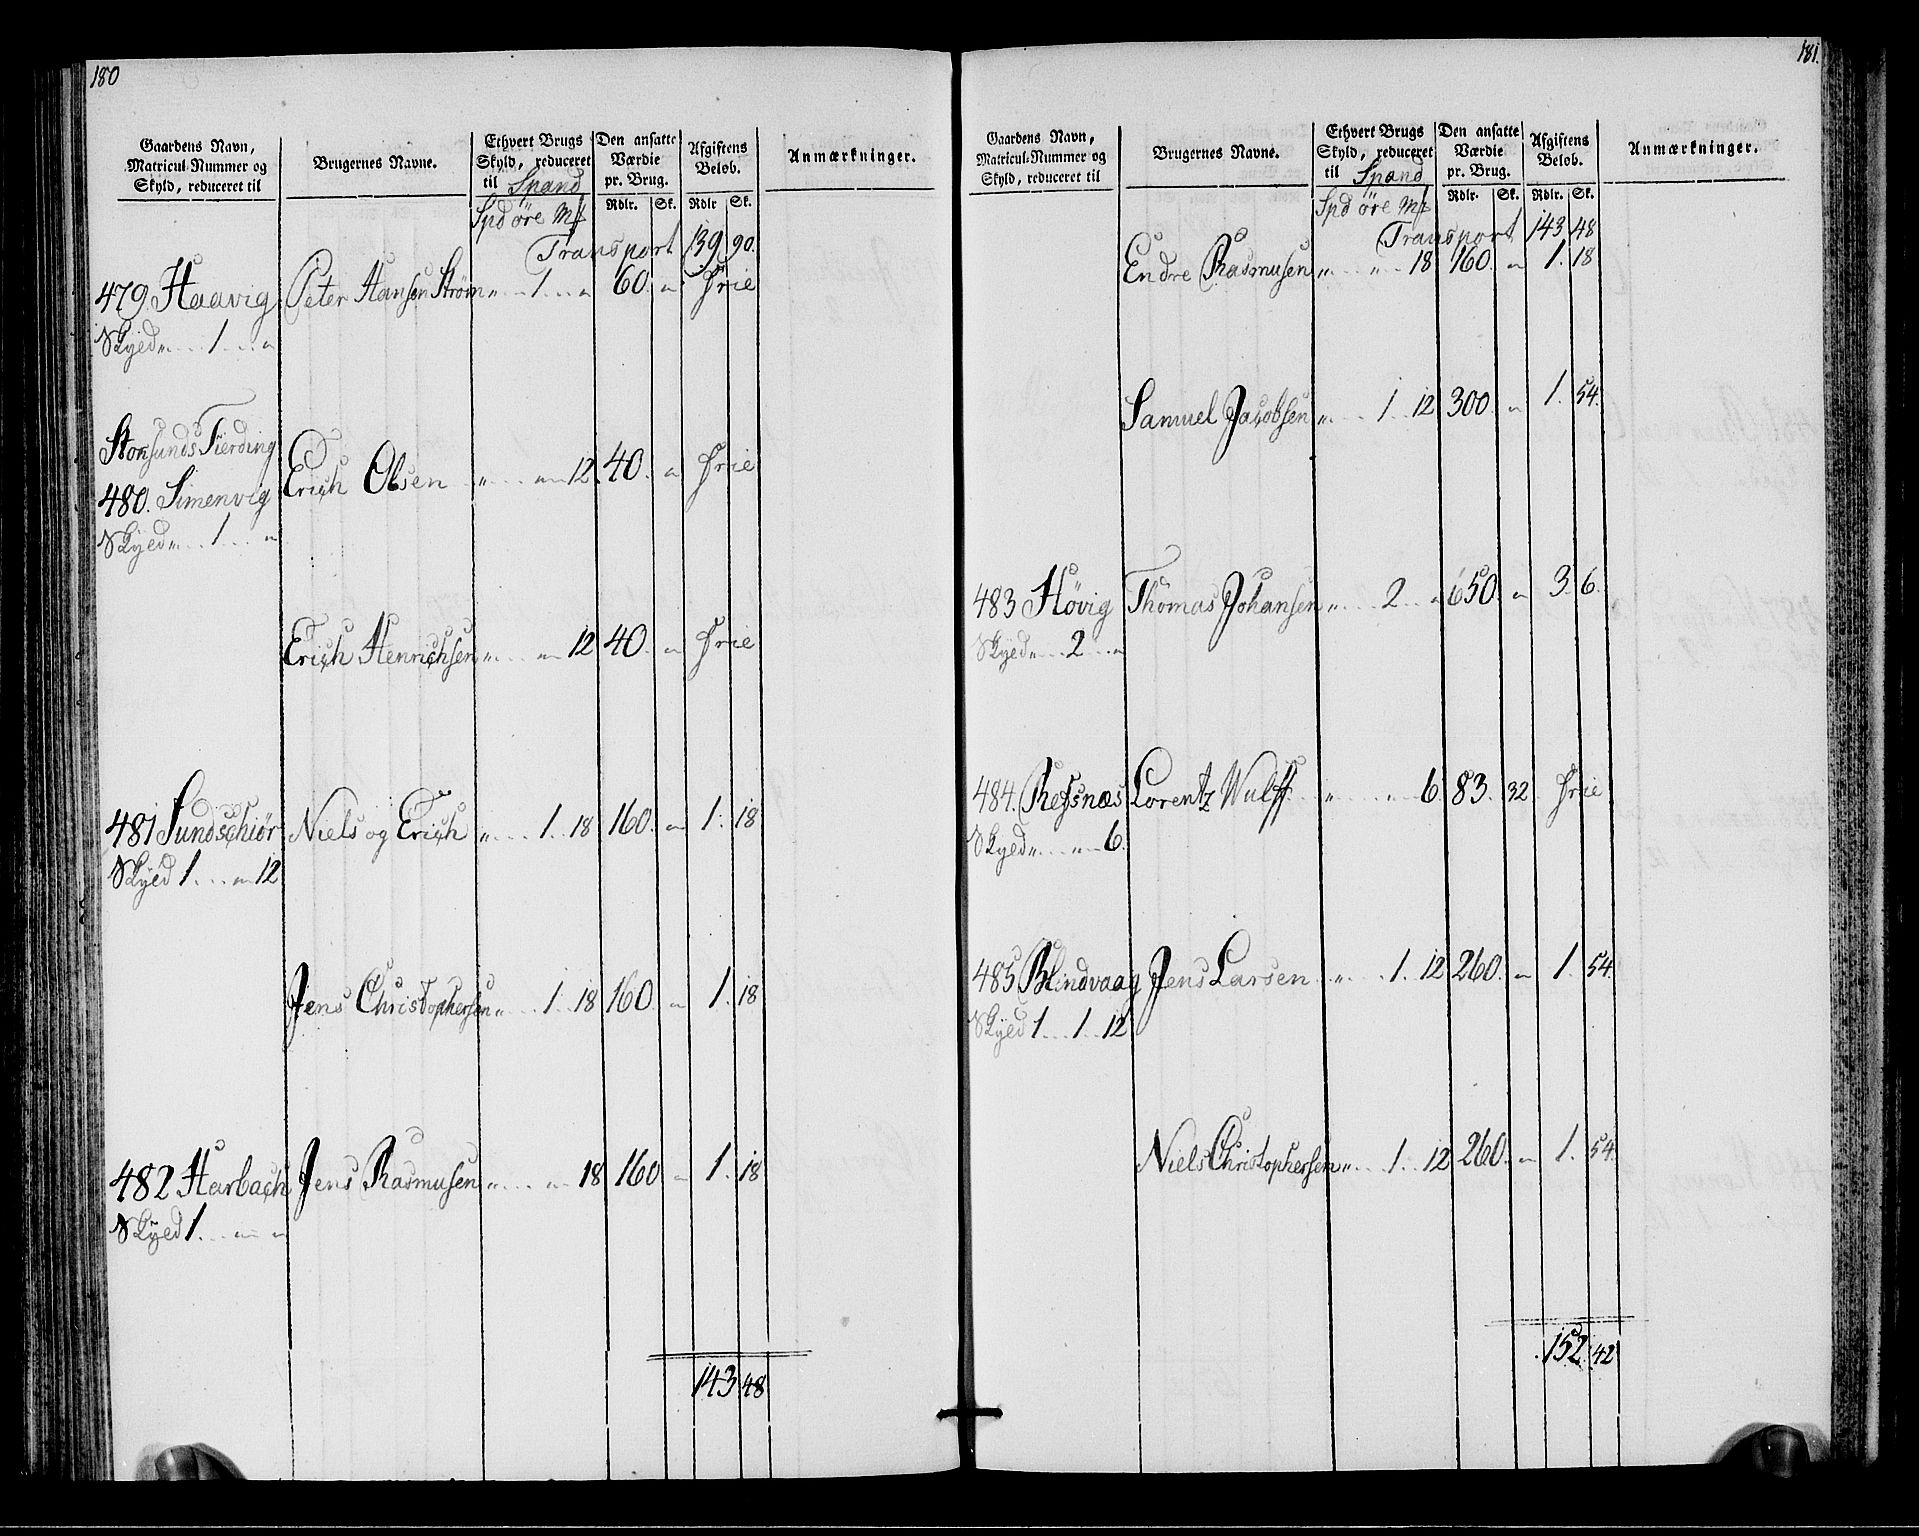 180
Gaardens Navn, Matricul-Nummer og Skyld, reduceret til
Brugernes Navne.
Ethvert Brugs Skyld, reduceret til Spand
Den ansatte Værdie pr. Brug.
Afgiftens Beløb.
Anmærkninger.
Spd öre Mk
Rdlr. Sk. Rdlr Sk.
Transport 139 90.
479. Haavig Peter Hansen Strøm „ 1 „ 60. „ Frie
Skyed „ 1 „
Storsunds Fierding
480. Simenvig Erich Olsen „ „ 12. 40. „ Frie
Skyed „ 1 „
Erich Henrichsen „ „ 12 40. „ Frie
481 Sundschiør Niels og Erich „ 1 18 160. „ 1. 18
Skyed 1 „ 12
Jens Christophersen „ 1 18 160. „ 1. 18
482 Harbach Jens Rasmusen „ „ 18 160 „ 1. 18
Skyed 1 „ „
143 48
181.
Gaardens Navn, Matricul-Nummer og Skyld, reduceret til
Brugernes Navne.
Ethvert Brugs Skyld, reduceret til Spand
Den ansatte Værdie pr. Brug.
Afgiftens Beløb.
Anmærkninger.
Spd öre Mk
Rdlr. Sk. Rdlr. Sk.
Transport 143 48
Endre Rasmusen „ „ 18 160. „ 1. 18
Samuel Jacobsen „ 1 12 300. „ 1. 54.
483 Høvig Thomas Johansen „ 2 „ 650. „ 3. 6.
Skyed „ 2 „
484. Refsnæs Lorentz Wulff „ „ 6. 83. 32. Frie
Skyed „ „ 6.
485 Blindvaag Jens Larsen „ 1 12 260. „ 1. 54
Skyed 1 1 12
Niels Christophersen „ 1 12 260. „ 1. 54.
152. 42